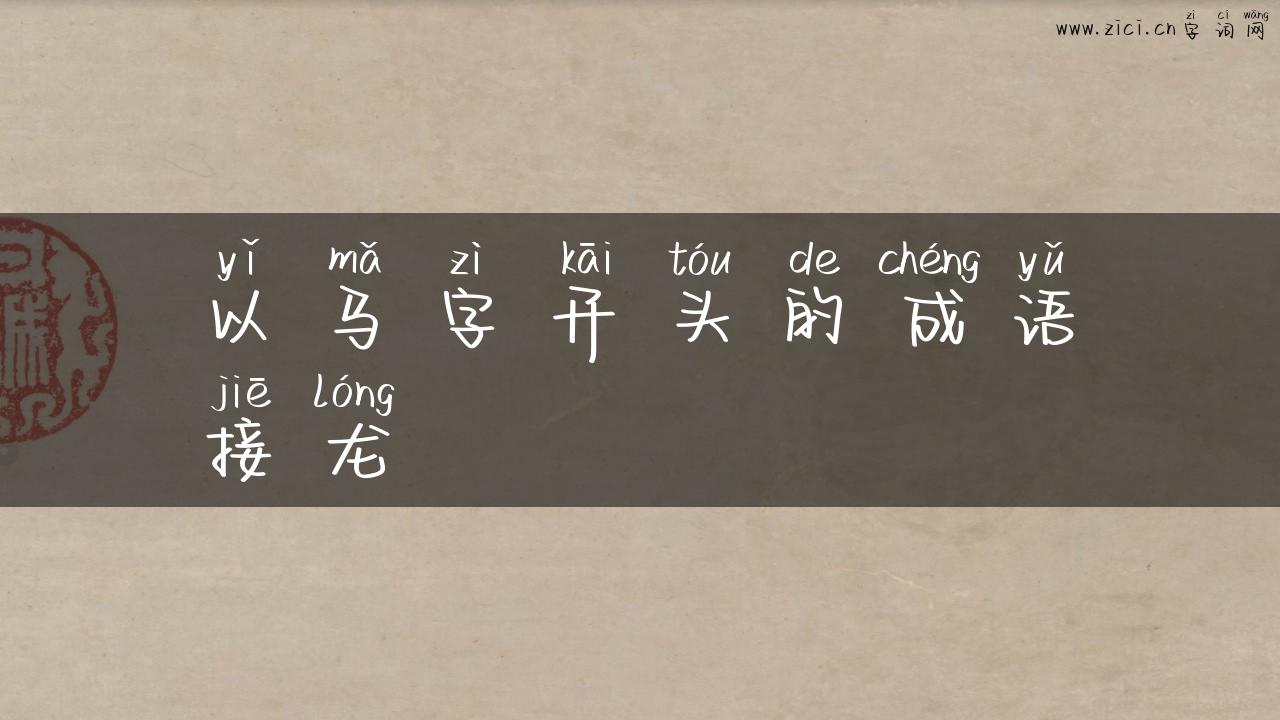 zì cí wǎng
www.zici.cn 字词网
yǐ mǎ zì kāi tóu de chéng yǔ
以马字开头的成语
jiē lóng
接龙